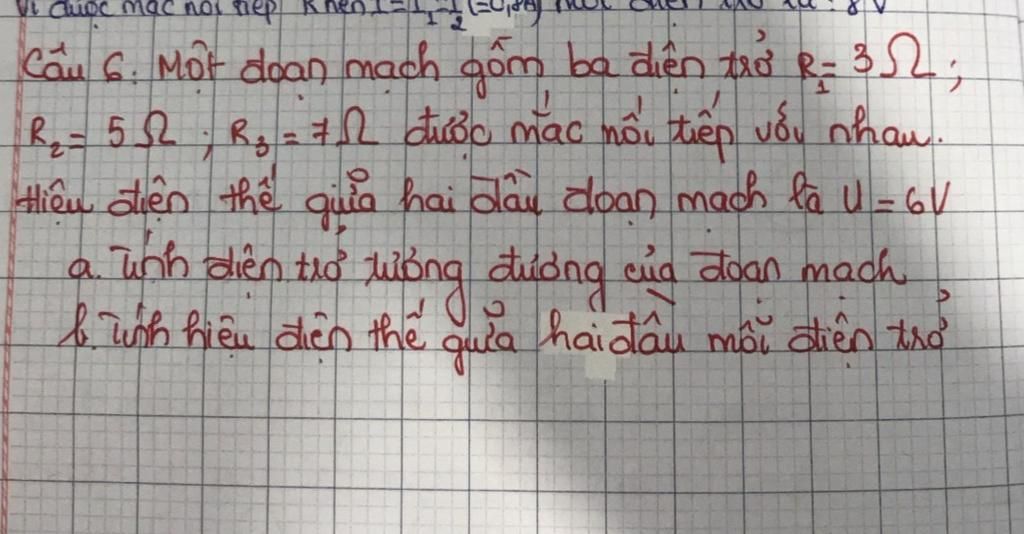 Vì được mạc nối tiếp
Câu 6. Một đoạn mạch gồm ba điện trở R₁= 3Ω;
R₂= 5Ω; R₃ = 7Ω được mắc nối tiếp với nhau.
Hiệu điện thế giữa hai đầu đoạn mạch là U = 6V
a. Tính điện trở tương đương của đoạn mạch
b. Tính hiệu điện thế giữa hai đầu mỗi điện trở